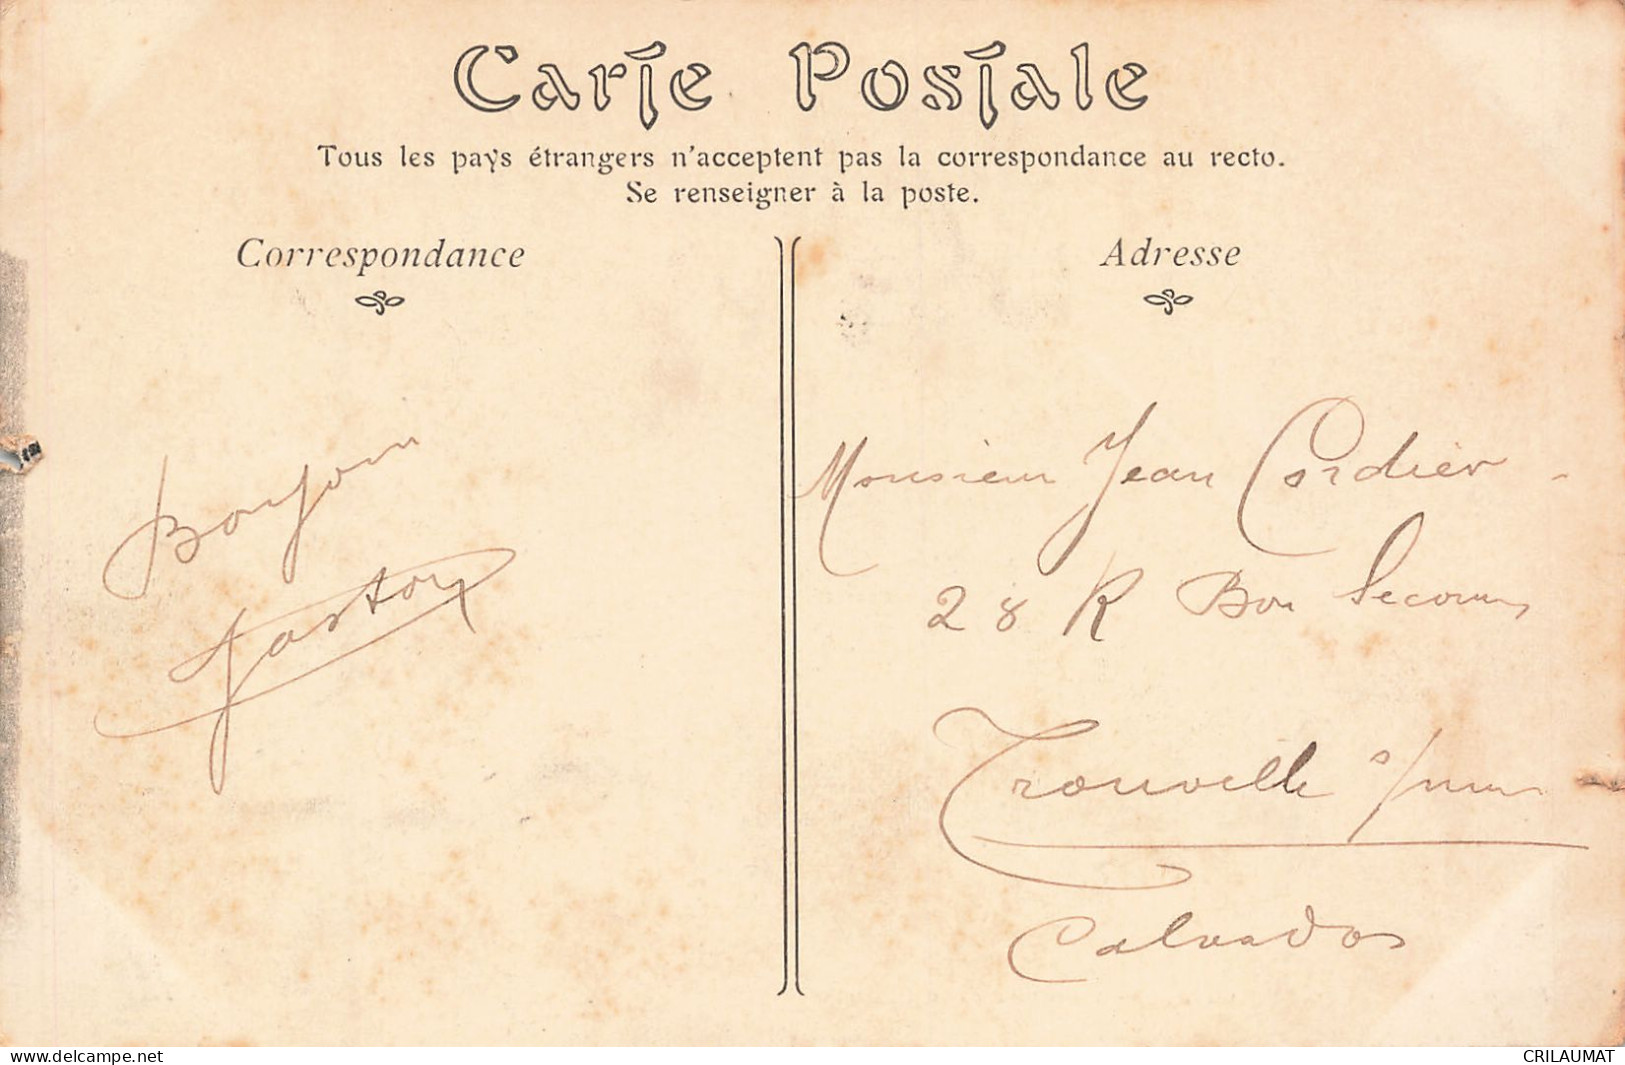 Carte Postale
Tous les pays étrangers n'acceptent pas la correspondance au recto.
Se renseigner à la poste.
Correspondance
Bonjour
Gaston
Adresse
Monsieur Jean Cordier
28 R Bon Secours
Trouville s/mer
Calvados
www.delcampe.net
CRILAUMAT